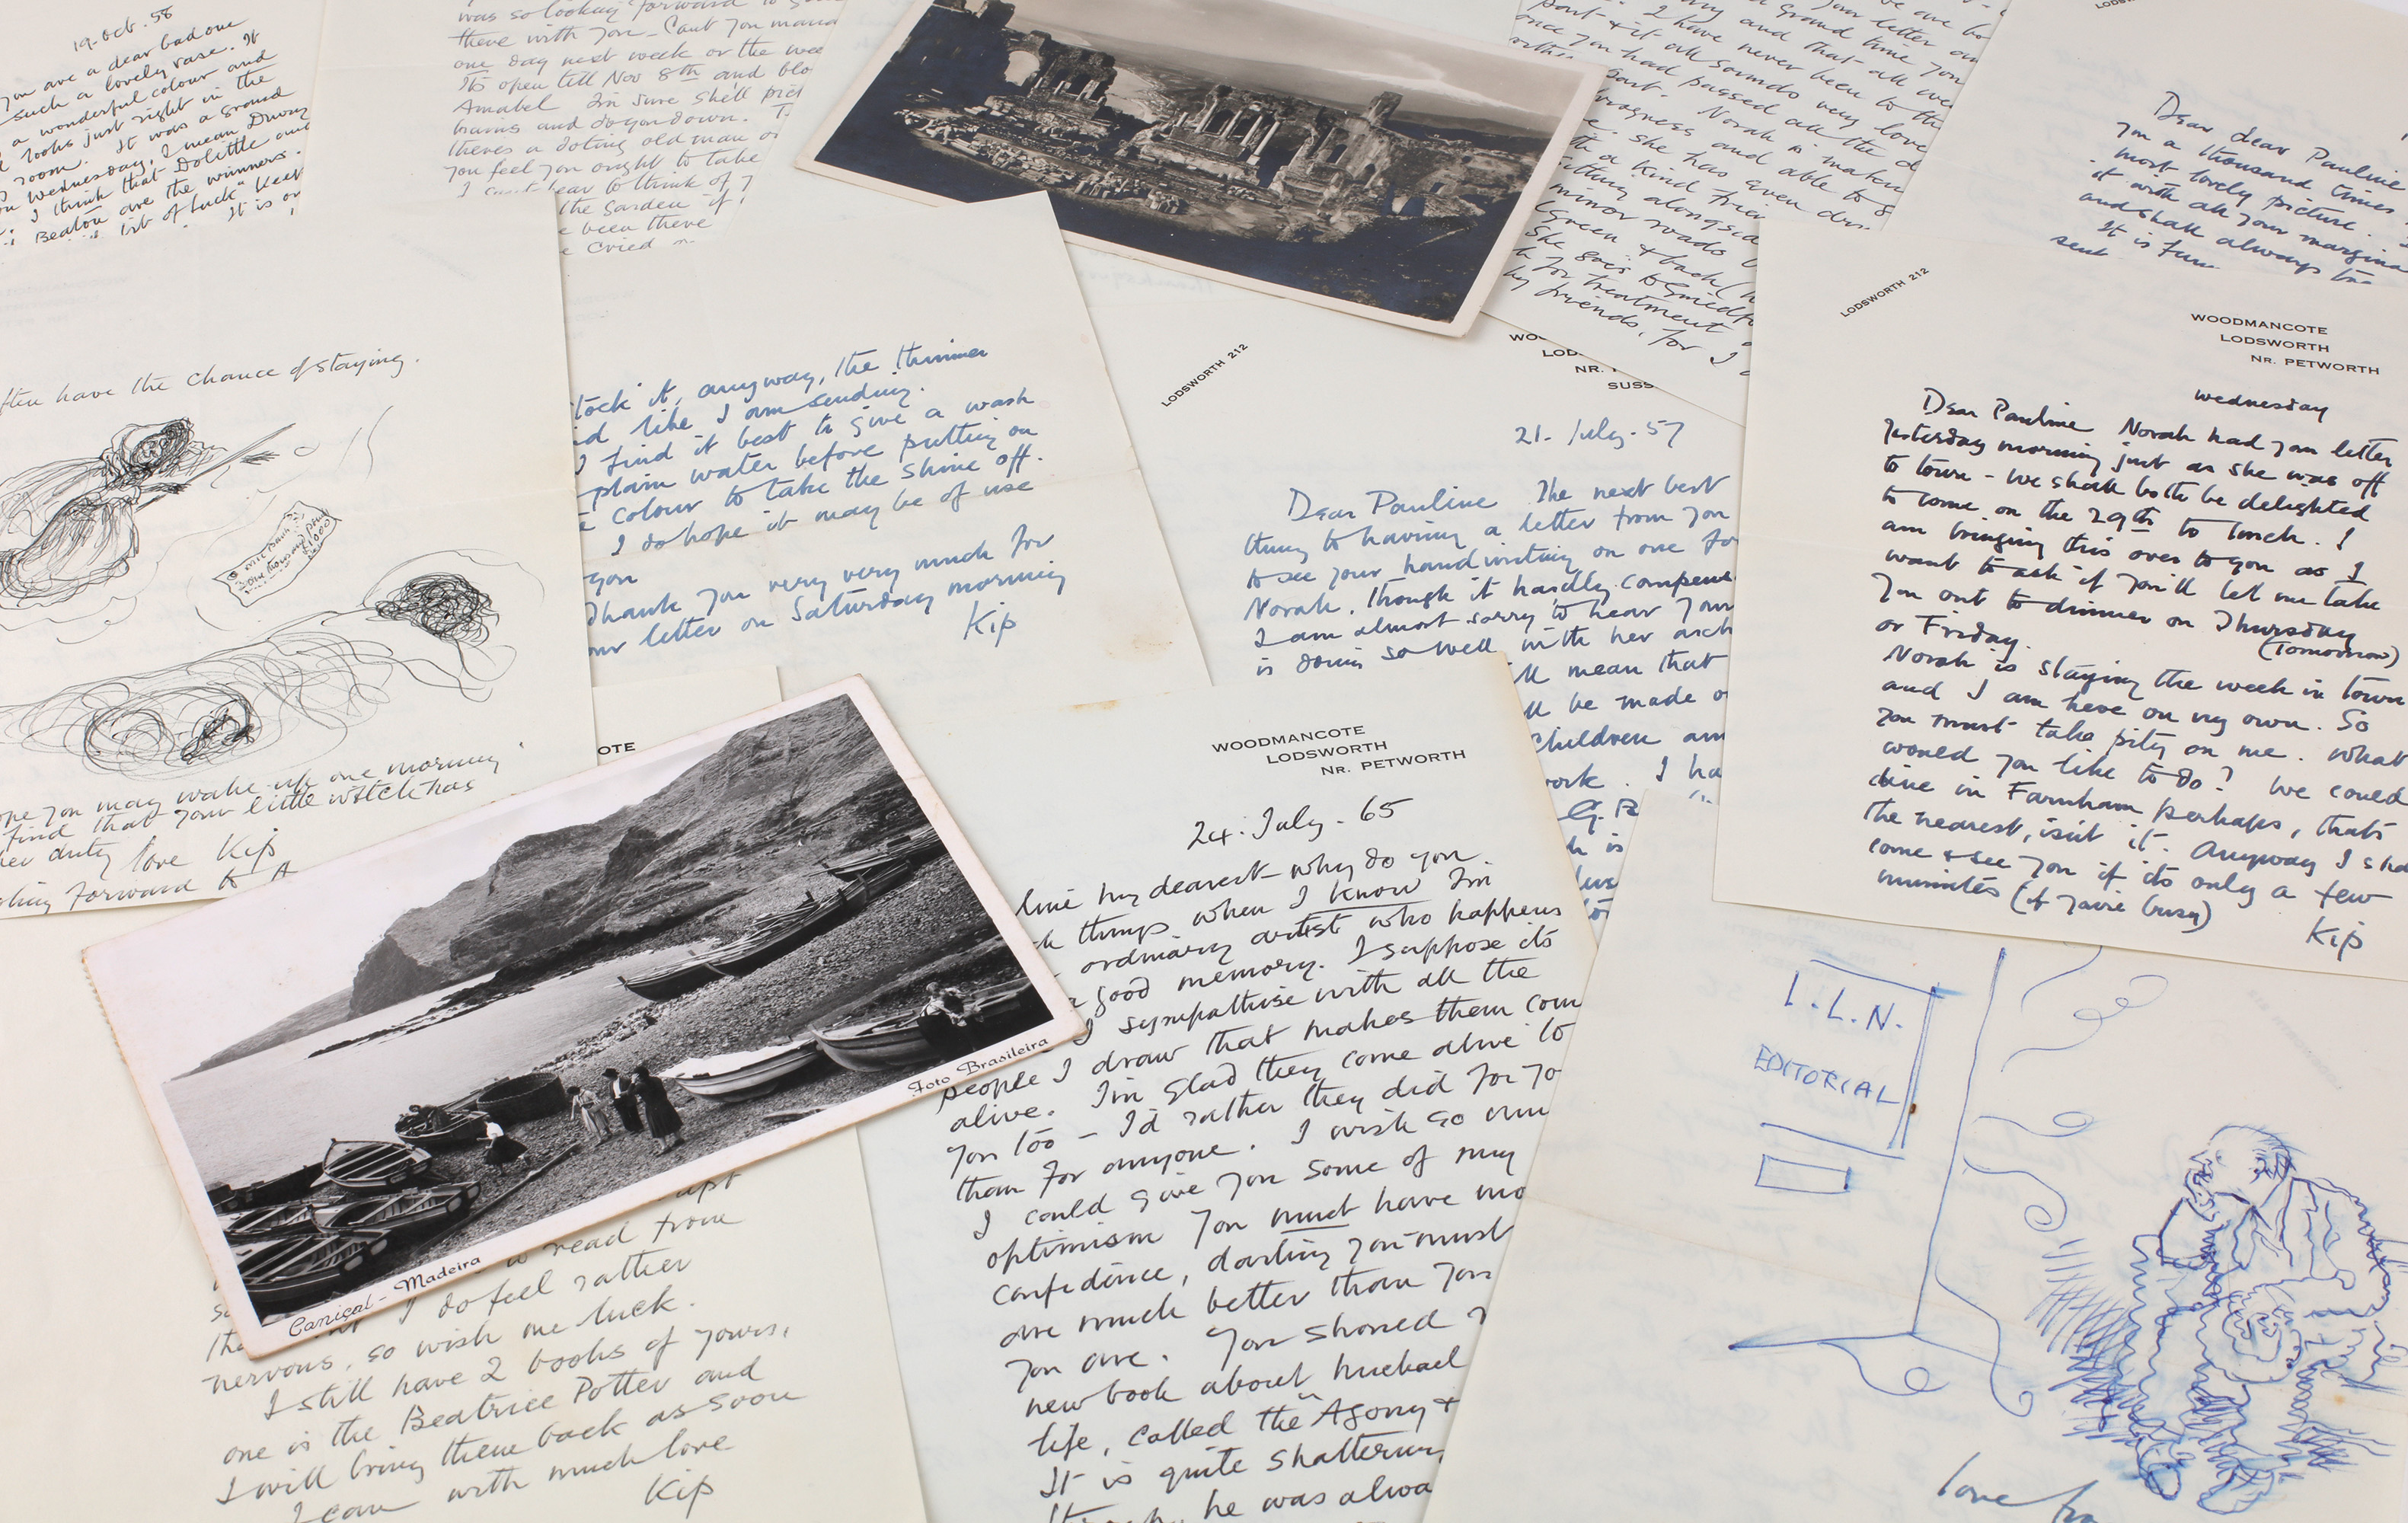 19. Oct. 58
you are a dear bad one
such a lovely vase. It
a wonderful colour and
looks just right in the
room. It was a grand
on Wednesday, I mean Drury
I think that Dolittle and
Beaton are the winners.
bit of luck" Keep
It is
was so looking forward to
there with you - Cant you mana
one day next week or the wee
Its open till Nov 8th and blo
Amabel Im sure she'll
trains and do you down.
theres a doting old man
you feel you ought to take
I cant bear to think of
the garden if
been there
cried
ften have the chance of staying.
one thousand
£1000
ope you may wake up one morning
find that your little witch has
her duty love Kip
king forward to
tock it, anyway, the thinner
d like I am sending.
I find it best to give a wash
plain water before putting on
colour to take the shine off.
I do hope it may be of use
you
Thank you very very much for
our letter on Saturday morning
Kip
part & it all sounds very love
once you had passed all the
part. Norah is makin
progress and able to
she has even
a kind
sitting alongsi
minor roads
Green & back
She goes to
for treatment
my friends, for I
LODSWORTH 212
LOD
NR.
SUSS
21. July. 57
Dear Pauline The next best
thing to having a letter from you
to see your handwriting on one fo
Norah, though it hardly compens
I am almost sorry to hear your
is doing so well with her arch
ll mean that
ll be made o
children am
work. I ha
is
Dear dear Pauline
you a thousand times
most lovely picture.
it with all your margina
and shall always
It is
sent
LODSWORTH 212
WOODMANCOTE
LODSWORTH
NR. PETWORTH
Wednesday
Dear Pauline Norah had your letter
yesterday morning just as she was off
to town - we shall both be delighted
to come on the 29th to lunch. I
am bringing this over to you as I
want to ask if you'll let me take
you out to dinner on Thursday
(Tomorrow)
or Friday.
Norah is staying the week in town
and I am here on my own. So
you must take pity on me. What
would you like to do? We could
dine in Farnham perhaps, thats
the nearest, isn't it. Anyway I sha
come & see you if its only a few
minutes (if you're busy)
Kip
OTE
Foto Brasileira
Caniçal - Madeira
read from
I do feel rather
nervous, so wish me luck.
I still have 2 books of yours,
one is the Beatrice Potter and
I will bring them back as soon
I can with much love
Kip
WOODMANCOTE
LODSWORTH
NR. PETWORTH
24. July. 65
line my dearest - why do you
things when I know Im
ordinary artist who happens
a good memory. I suppose its
I sympathise with all the
people I draw that makes them com
alive. I'm glad they come alive to
you too - I'd rather they did for yo
than for anyone. I wish so
I could give you some of my
optimism You must have mo
confidence, darling you must
are much better than you
you are. You showed
new book about Michael
life, called the "Agony +
It is quite shattering
he was alwa
I.L.N.
EDITORIAL
love